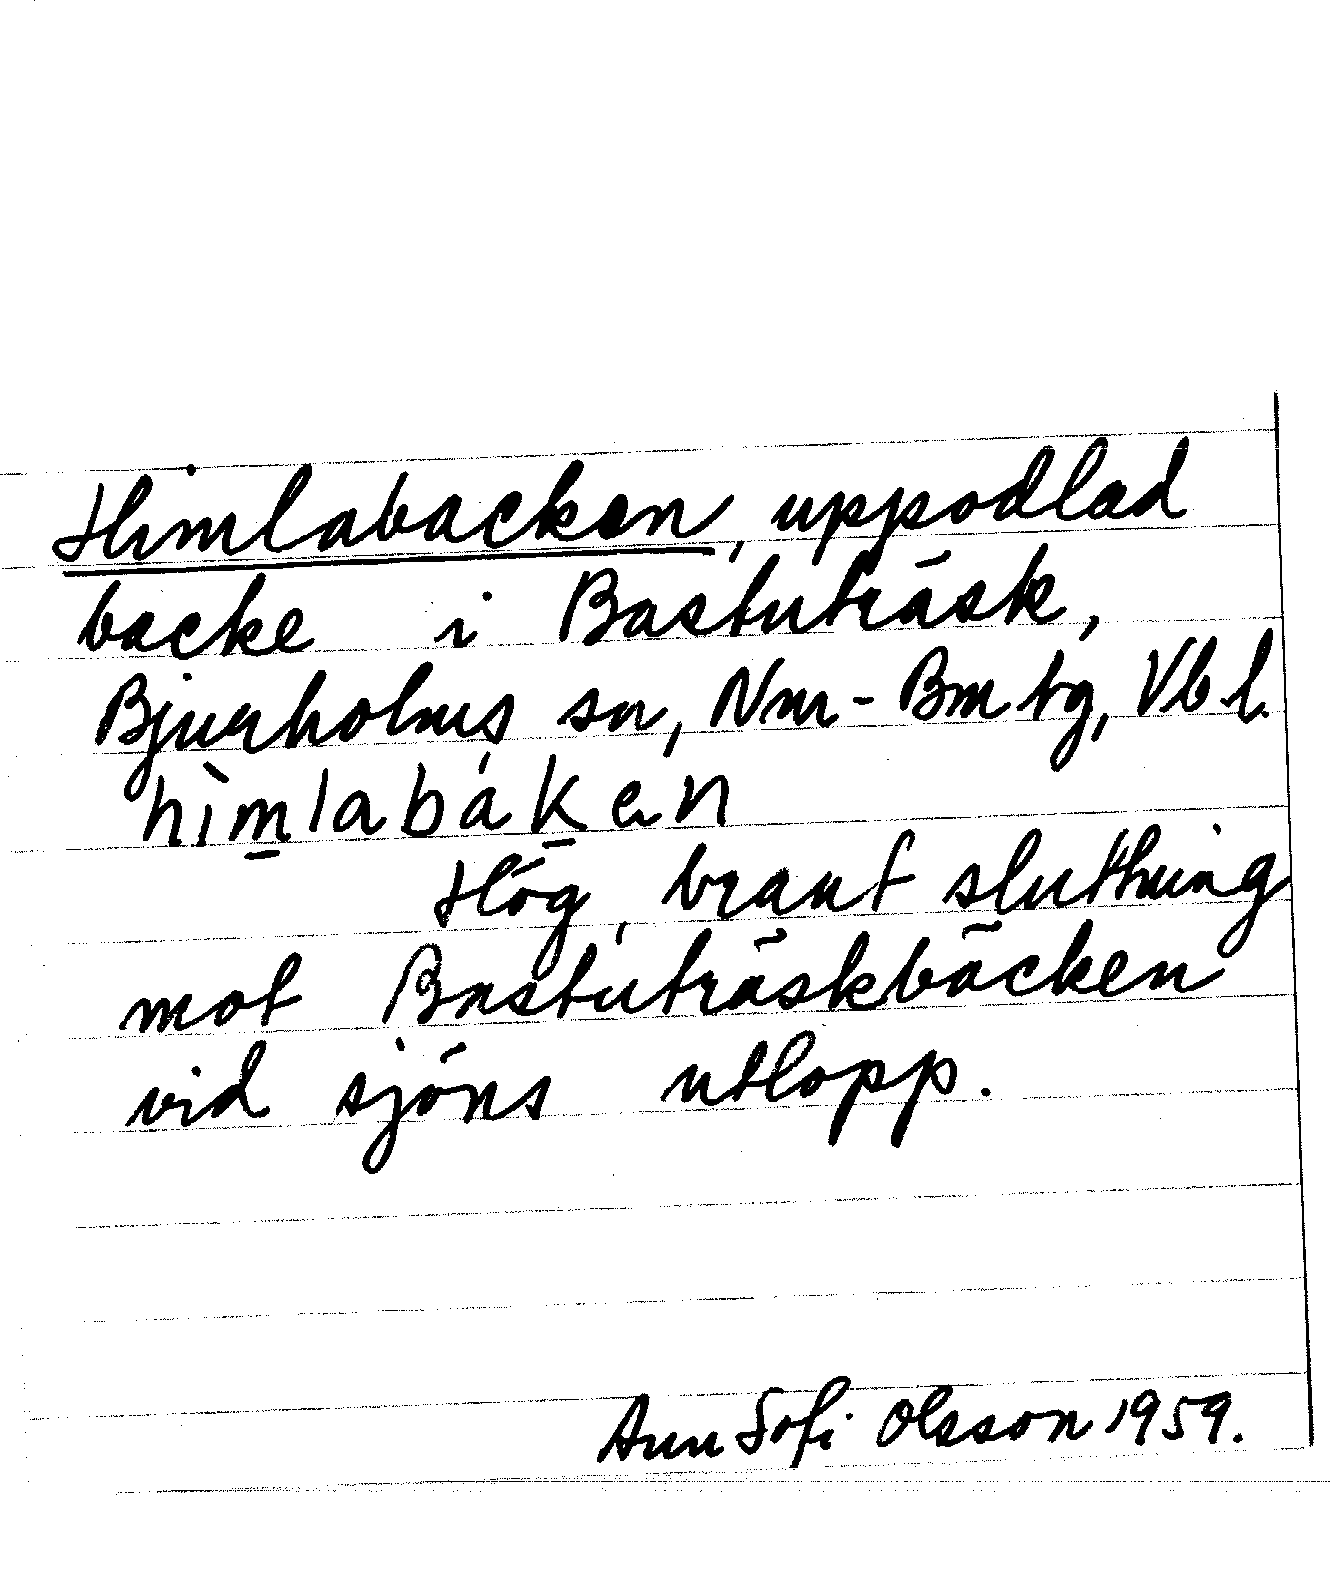 Himlabacken, uppodlad
backe i Bastuträsk,
Bjurholms sn, Nm-Bm tg, Vb l.
hìmlabáken
Hög, brant sluttning
mot Bastuträskbäcken
vid sjöns utlopp.
Ann Sofi Olsson 1959.